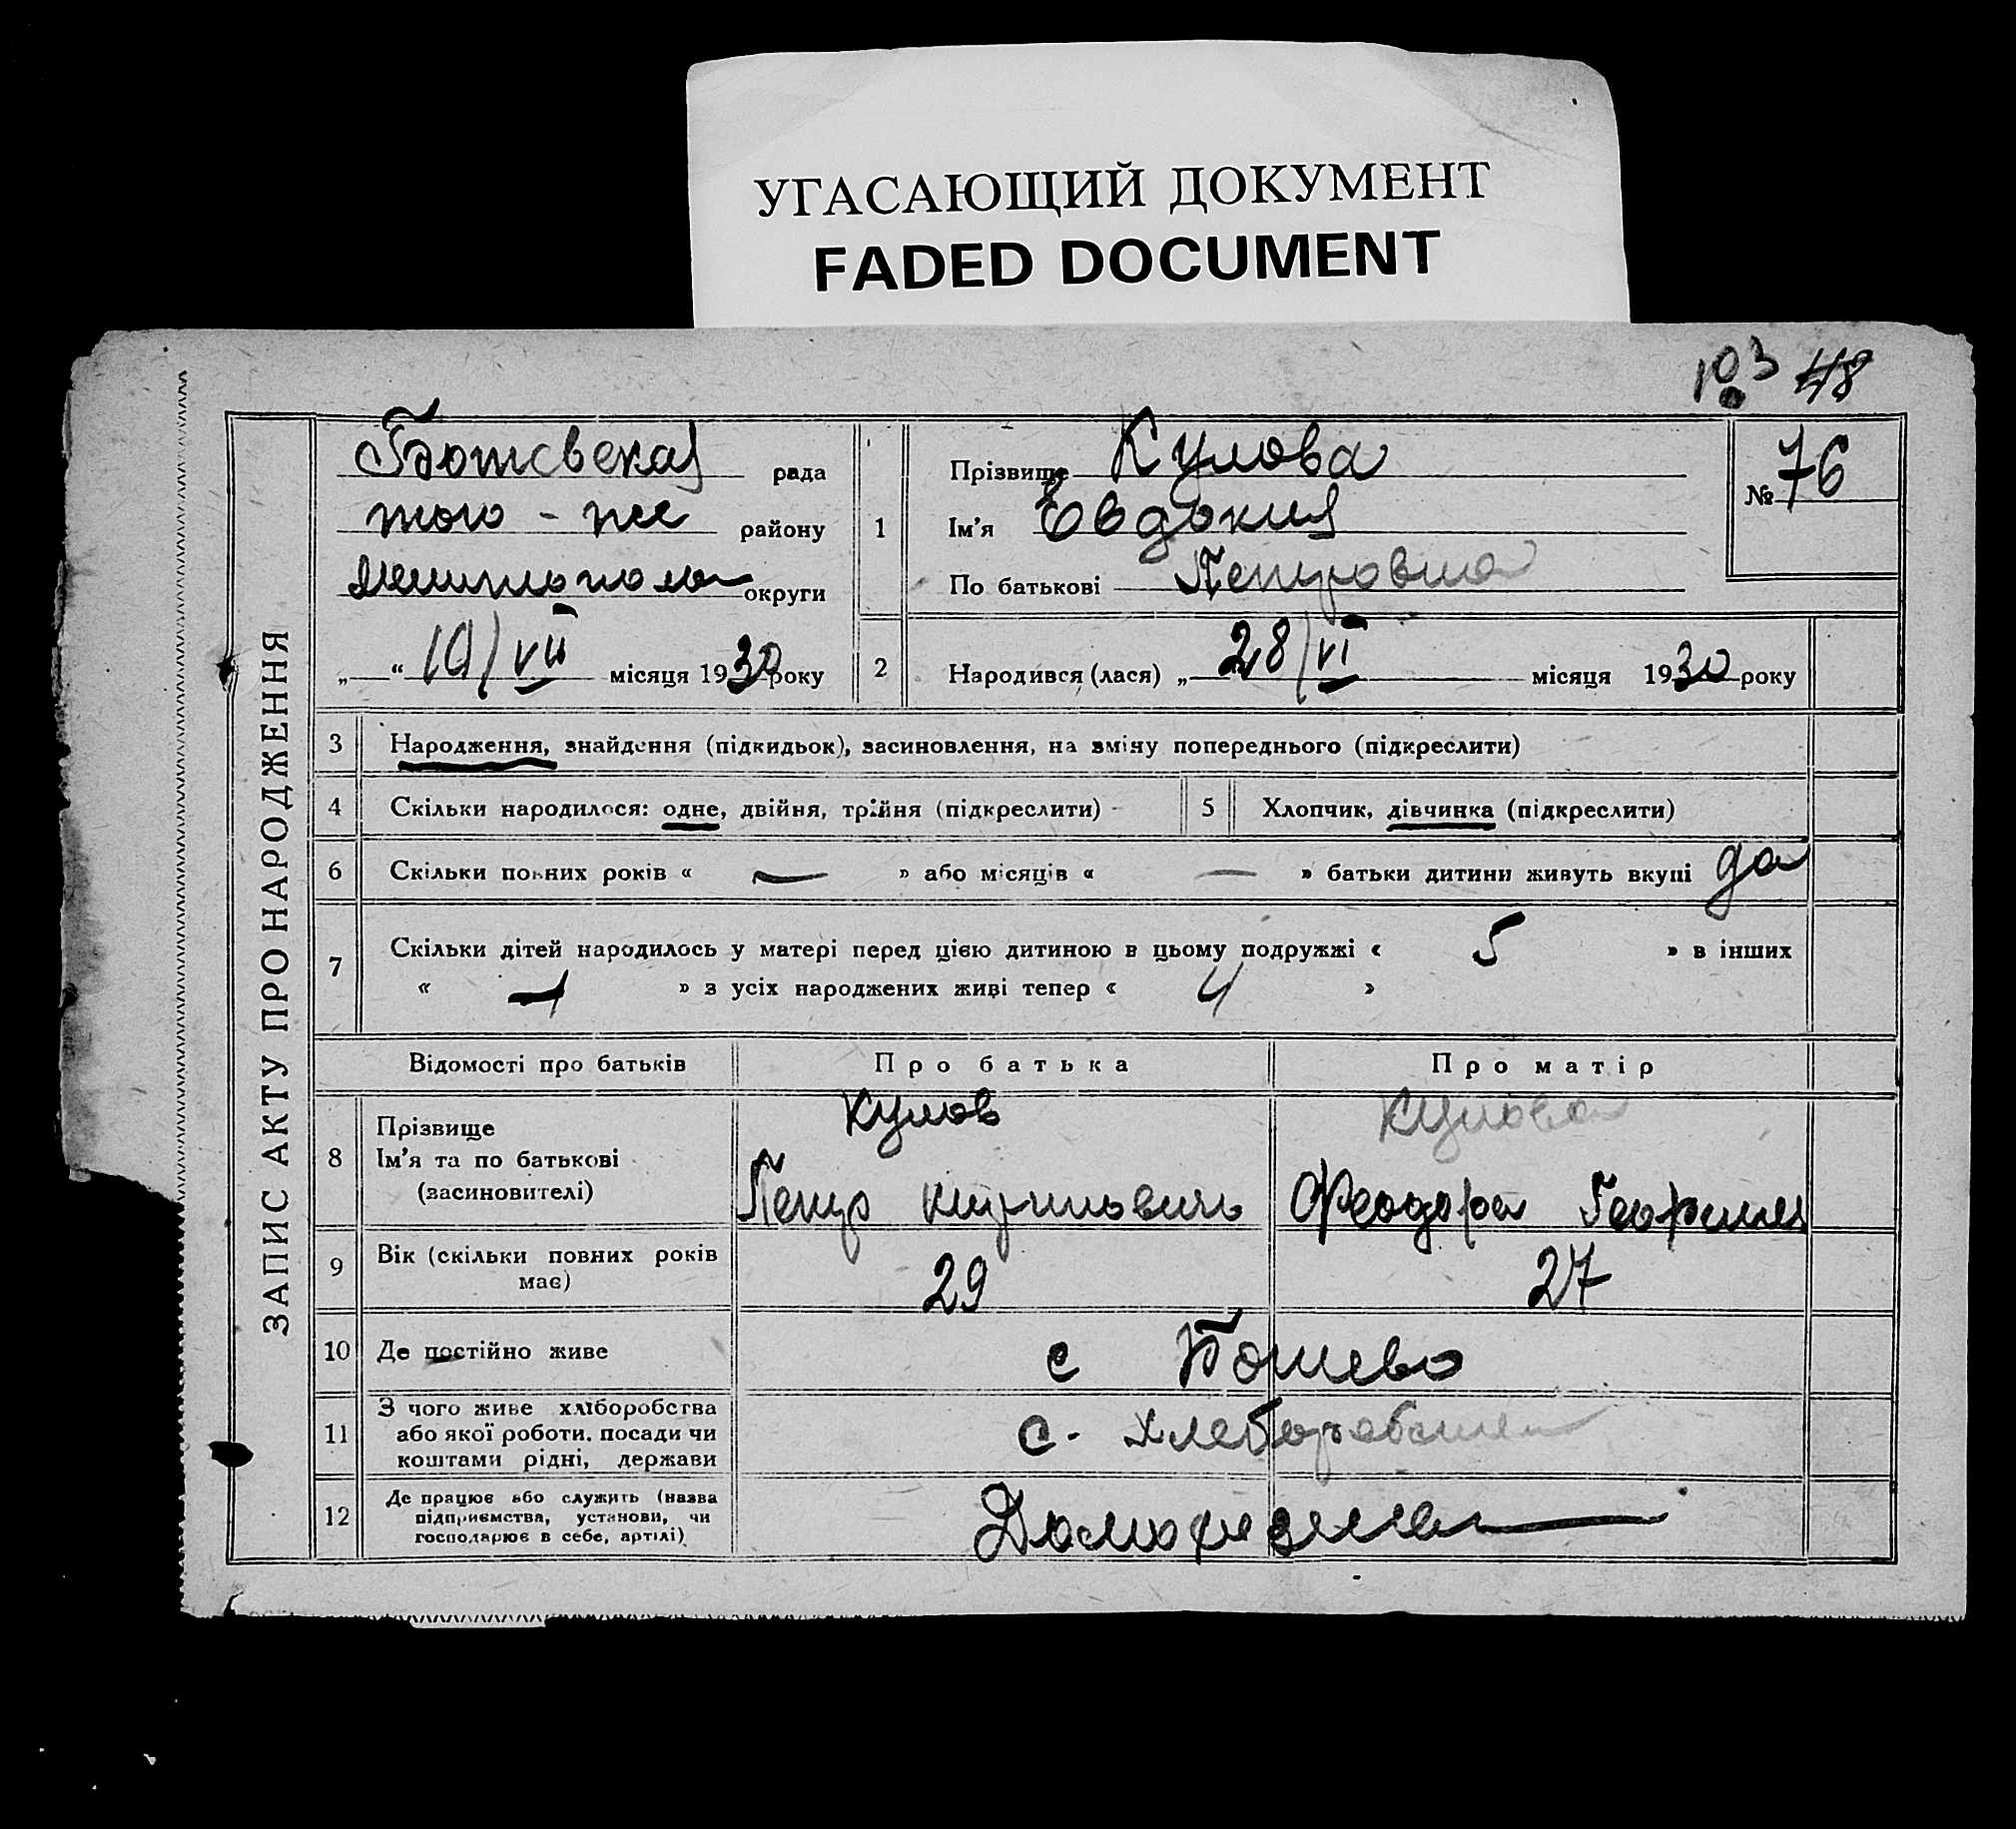 УГАСАЮЩИЙ ДОКУМЕНТ
FADED DOCUMENT
103 48
ЗАПИС АКТУ ПРО НАРОДЖЕННЯ
рада
того-же району
округи
„ “ 19/VII місяця 1930 року
1
Прізвище Кулова
Ім'я Евдокия
По батькові Петровна
№ 76
2
Народився (лася) „ 28/VI місяця 1930 року
3 Народження, знайдення (підкидьок), засиновлення, на зміну попереднього (підкреслити)
4 Скільки народилося: одне, двійня, трійня (підкреслити) 5 Хлопчик, дівчинка (підкреслити)
6 Скільки повних років « — » або місяців « — » батьки дитини живуть вкупі да
7 Скільки дітей народилось у матері перед цією дитиною в цьому подружжі « 5 » в інших
« » з усіх народжених живі тепер « 4 »
Відомості про батьків Про батька Про матір
8 Прізвище
Ім'я та по батькові
(засиновителі)
Кулов
Петр Кирилович
Кулова
Феодора
9 Вік (скільки повних років
має)
29 27
10 Де постійно живе с Ботево
11 З чого живе хліборобства
або якої роботи, посади чи
коштами рідні, держави
с.
12 Де працює або служить (назва
підприємства, установи, чи
господарює в себе, артілі)